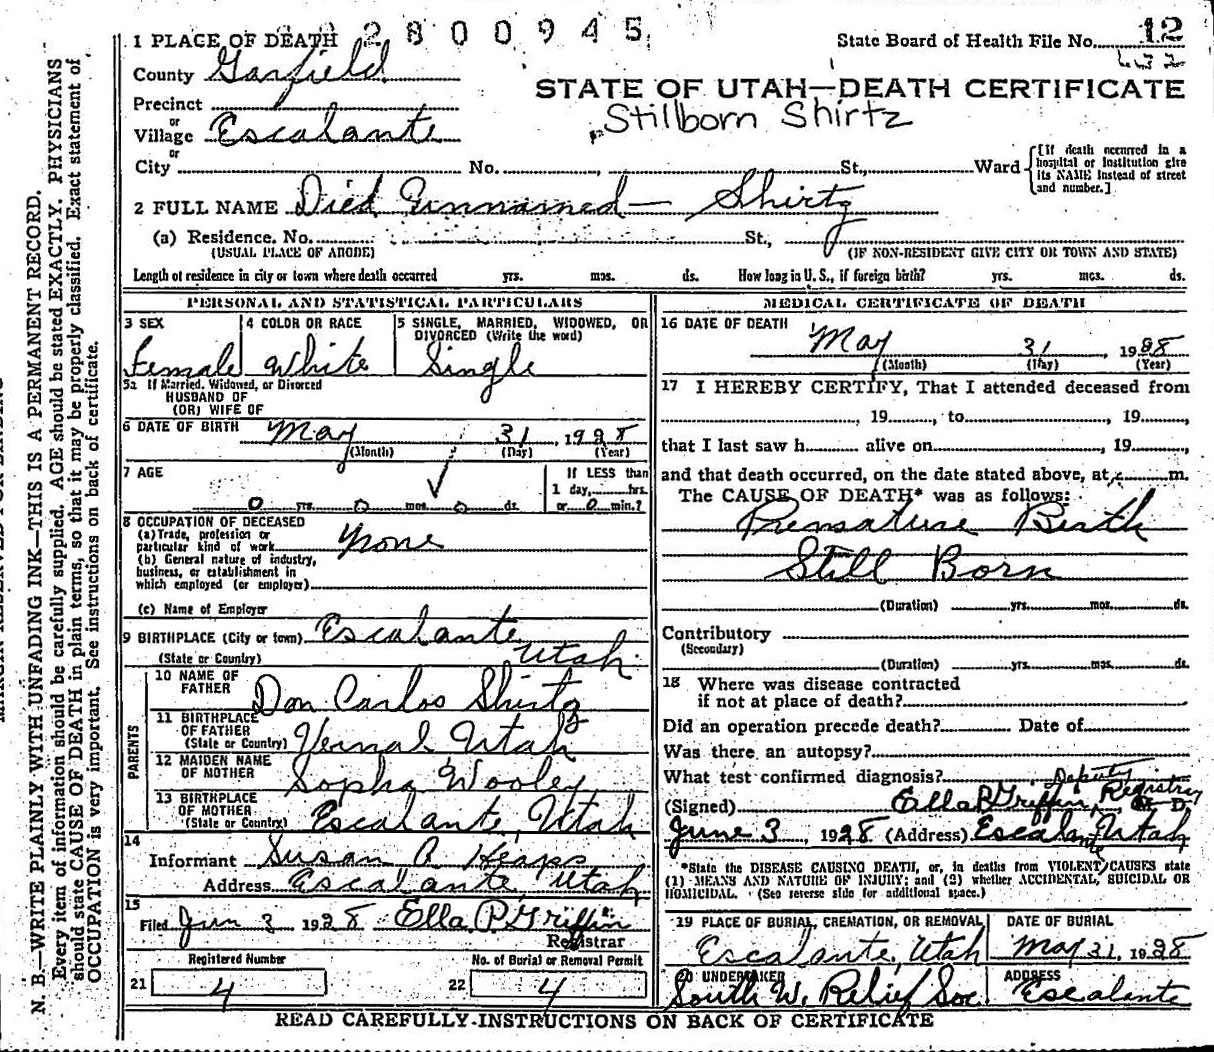 2800945
State Board of Health File No. 12
432
1 PLACE OF DEATH
County Garfield
STATE OF UTAH—DEATH CERTIFICATE
Stillborn Shirtz
Precinct
or
Village Escalante
or
City No. St., Ward
[If death occurred in a hospital or institution give its NAME instead of street and number.]
2 FULL NAME Died Unnamed — Shirtz
(a) Residence. No. St.,
(USUAL PLACE OF ABODE) (IF NON-RESIDENT GIVE CITY OR TOWN AND STATE)
Length of residence in city or town where death occurred yrs. mos. ds. How long in U. S., if foreign birth? yrs. mos. ds.
PERSONAL AND STATISTICAL PARTICULARS
3 SEX
Female
4 COLOR OR RACE
White
5 SINGLE, MARRIED, WIDOWED, OR
DIVORCED (Write the word)
Single
5a If Married, Widowed, or Divorced
HUSBAND OF
(OR) WIFE OF
6 DATE OF BIRTH May 31, 1928
(Month) (Day) (Year)
7 AGE
0 yrs. 0 mos. 0 ds.
If LESS than
1 day, hrs.
or 0 min.?
8 OCCUPATION OF DECEASED
(a) Trade, profession or
particular kind of work None
(b) General nature of industry,
business, or establishment in
which employed (or employer)
(c) Name of Employer
9 BIRTHPLACE (City or town) Escalante
(State or Country) Utah.
PARENTS
10 NAME OF
FATHER Don Carlos Shirtz
11 BIRTHPLACE
OF FATHER
(State or Country) Vernal Utah
12 MAIDEN NAME
OF MOTHER Sopha Wooley
13 BIRTHPLACE
OF MOTHER
(State or Country) Escalante, Utah
14
Informant Susan A Heaps
Address Escalante, Utah
15
Filed Jun 3 1928 Ella P. Griffin
Registrar
Registered Number
21 4
No. of Burial or Removal Permit
22 4
MEDICAL CERTIFICATE OF DEATH
16 DATE OF DEATH
May 31, 1928
(Month) (Day) (Year)
17 I HEREBY CERTIFY, That I attended deceased from
, 19 , to , 19 ,
that I last saw h alive on , 19 ,
and that death occurred, on the date stated above, at m.
The CAUSE OF DEATH* was as follows:
Premature Birth
Still Born
(Duration) yrs. mos. ds.
Contributory
(Secondary)
(Duration) yrs. mos. ds.
18 Where was disease contracted
if not at place of death?
Did an operation precede death? Date of
Was there an autopsy?
What test confirmed diagnosis?
Deputy
(Signed) Ella P Griffin, Registry
June 3, 1928 (Address) Escalante Utah
*State the DISEASE CAUSING DEATH, or, in deaths from VIOLENT CAUSES state
(1) MEANS AND NATURE OF INJURY; and (2) whether ACCIDENTAL, SUICIDAL OR
HOMICIDAL. (See reverse side for additional space.)
19 PLACE OF BURIAL, CREMATION, OR REMOVAL
Escalante, Utah
DATE OF BURIAL
May 31, 1928
20 UNDERTAKER
South W. Relief Soc.
ADDRESS
Escalante
READ CAREFULLY-INSTRUCTIONS ON BACK OF CERTIFICATE
N. B.—WRITE PLAINLY WITH UNFADING INK—THIS IS A PERMANENT RECORD.
Every item of information should be carefully supplied. AGE should be stated EXACTLY. PHYSICIANS
should state CAUSE OF DEATH in plain terms, so that it may be properly classified. Exact statement of
OCCUPATION is very important. See instructions on back of certificate.